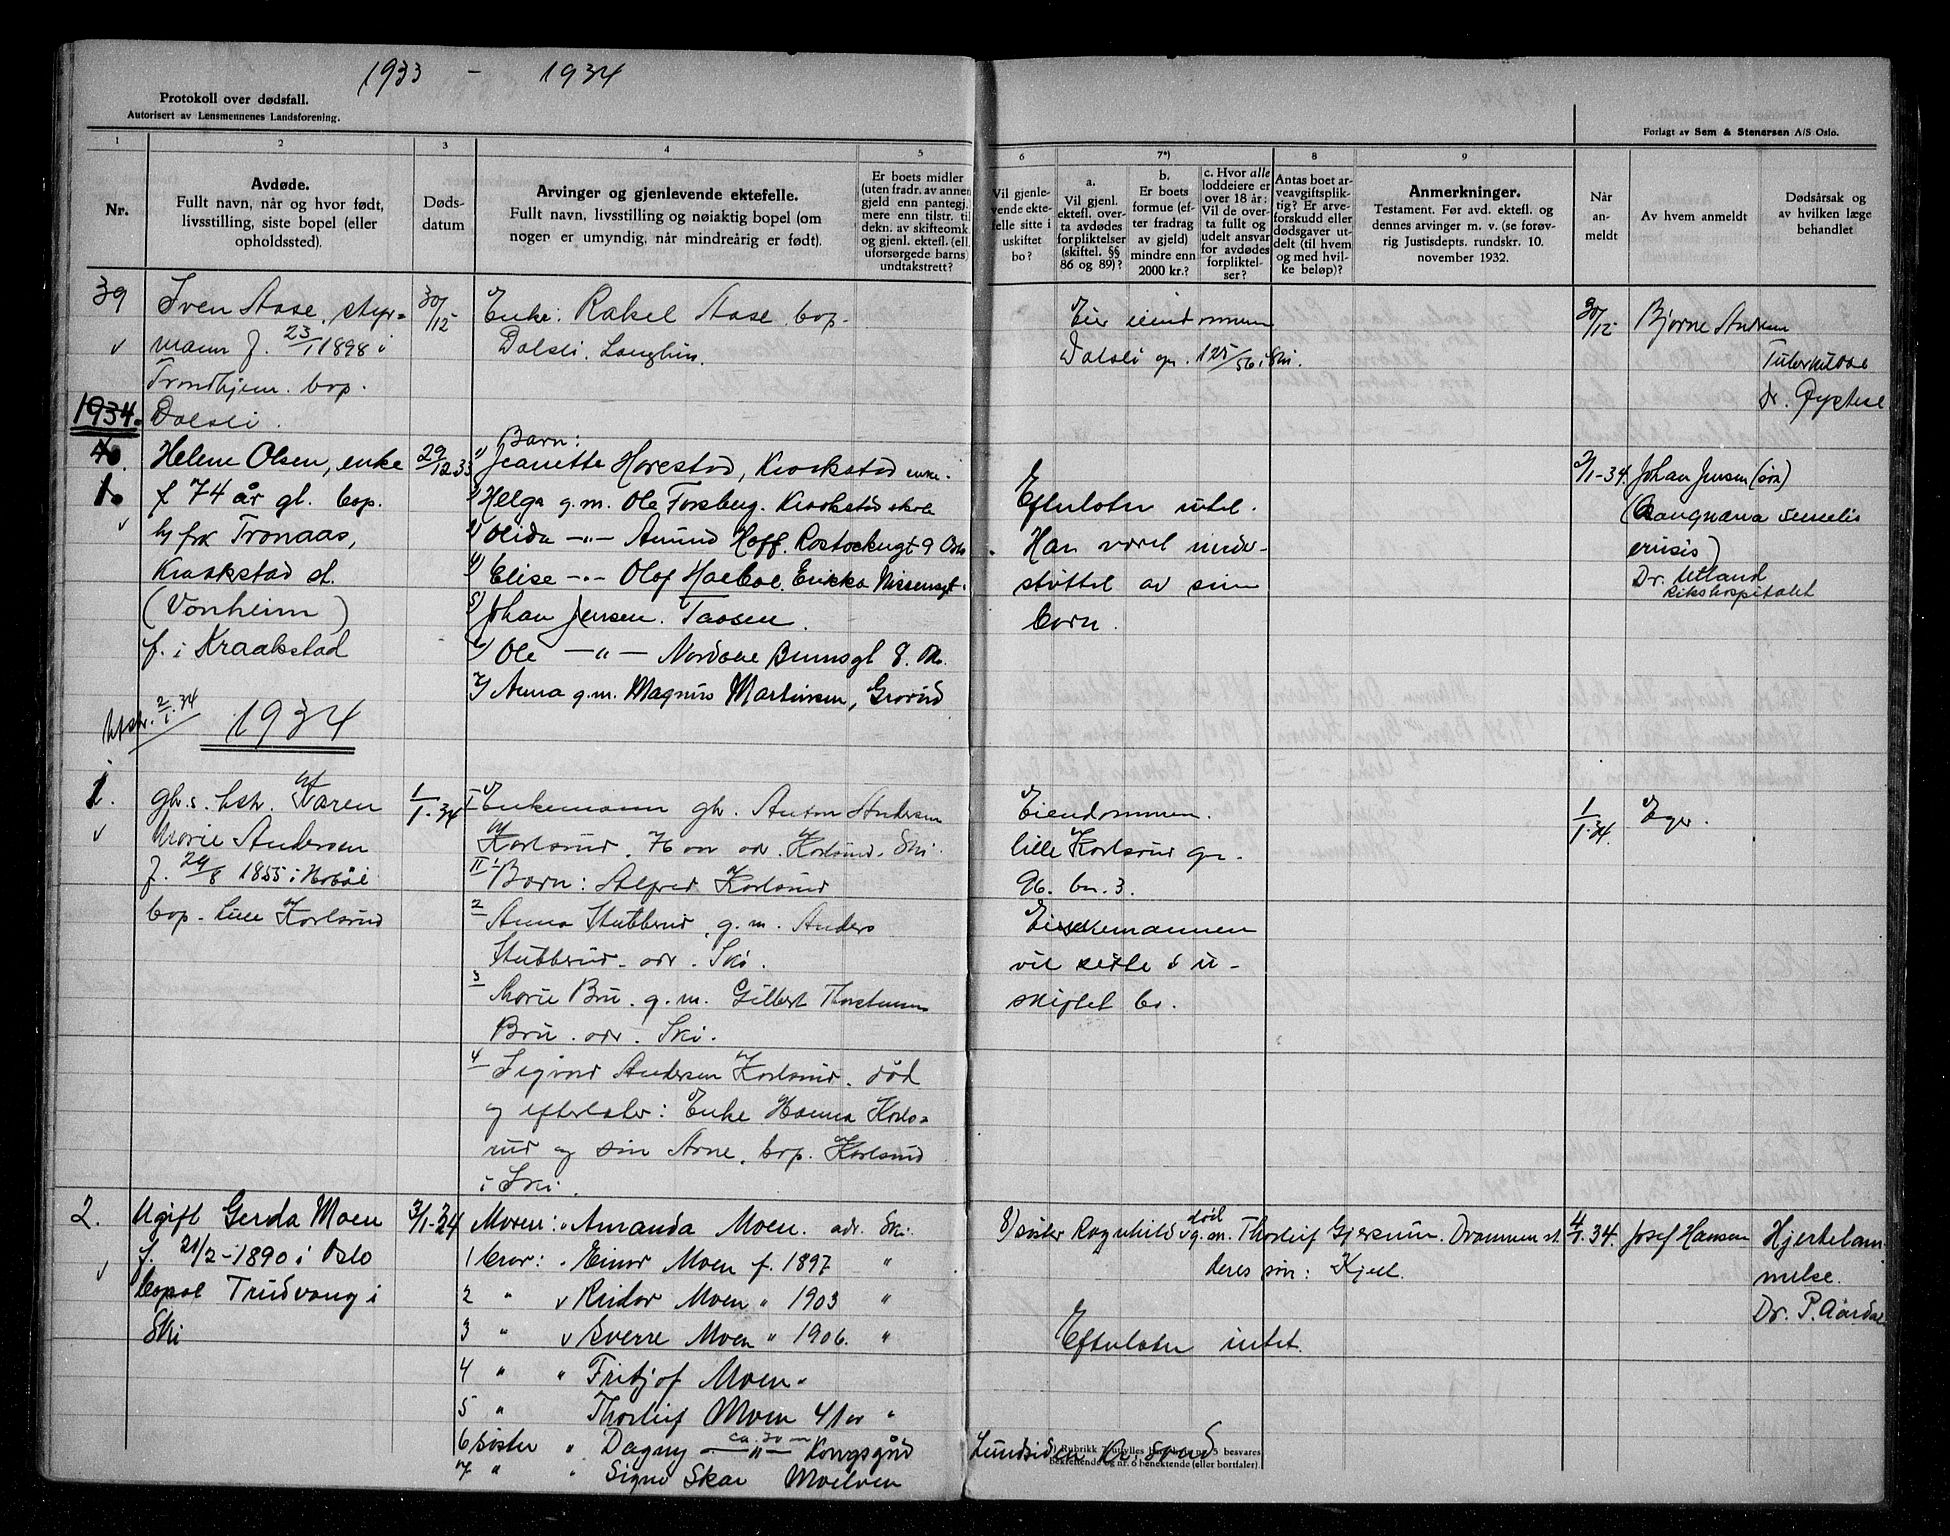 1933 - 1934
Protokoll over dødsfall.
Autorisert av Lensmennenes Landsforening.
Forlagt av Sem & Stenersen A/S Oslo.
1 2 3 4 5 6 7*) 8 9
Nr.
Avdøde.
Fullt navn, når og hvor født,
livsstilling, siste bopel (eller
opholdssted).
Døds-
datum
Arvinger og gjenlevende ektefelle.
Fullt navn, livsstilling og nøiaktig bopel (om
nogen er umyndig, når mindreårig er født).
Er boets midler
(uten fradr. av annen
gjeld enn pantegj.)
mere enn tilstr. til
dekn. av skifteomk.
og gjenl. ektef. (ell.
uforsørgede barns)
undtakstrett?
Vil gjenle-
vende ekte-
felle sitte i
uskiftet
bo?
a.
Vil gjenl.
ektef. over-
ta avdødes
forpliktelser
(skiftel. §§
86 og 89)?
b.
Er boets
formue (ef-
ter fradrag
av gjeld)
mindre enn
2000 kr.?
c. Hvor alle
loddeiere er
over 18 år:
Vil de over-
ta fullt og
udelt ansvar
for avdødes
forpliktel-
ser?
Antas boet ar-
veavgiftsplik-
tig? Er arve-
forskudd eller
dødsgaver ut-
delt (til hvem
og med hvil-
ke beløp)?
Anmerkninger.
Testament. Før avd. ektefl. og
dennes arvinger m. v. (se forøv-
rig Justisdepts. rundskr. 10.
november 1932.
Når
an-
meldt
Av hvem anmeldt
Dødsårsak og
av hvilken læge
behandlet
39
Iven Aase, styr-
mann f. 23/1 1898 i
Trondhjem. bop.
Dalsli.
30/12
Enke: Rakel Aase bop.
Dalsli, Langhus.
Eier eiendommen
Dalsli gn. 125/56 i Ski.
30/12
Bjarne
Tuberkulose
Dr. Øystese
1934.
40.
1.
Helene Olsen, enke
f 74 år gl. bop.
hj frk Tronaas,
Kraakstad st.
(Vonheim)
f. i Kraakstad
29/12 33
Barn:
1) Jeanette Horestad, Kraakstad enke.
2) Helga g.m. Ole Forsberg. Kraakstad skole
3) Olida -"- Amund Hoff. Rostockergt 9 Oslo
4) Elise -"- Olaf Erikka Nissensgt.
5) Johan Jensen. Taasen.
6) Ole -"- Nordahl Brunsgt 8.
7) Anna g.m. Magnus Martinsen, Grorud
Efterlater intet.
Har været under-
støttet av sine
barn.
2/1-34.
Johan Jensen (søn)
(Gangræna senelis
crusis)
Dr. Utland
Rikshospitalet
2/1.34
1934
1.
gh.s. hstr. Karen
Marie Andersen
f. 29/8 1855 i Hobøl
bop. Lille Karlsrud
1/1.34
I Enkemann gh. Anton Andersen
Karlsrud, 76 aar adr. Karlsrud. Ski.
II 1 Barn: Alfred Karlsrud
2 Anna Stubberud, g.m. Anders
Stubberud. adr. Ski.
3 Marie Bru. g.m. Gilbert Thorstensen
Bru. adr. Ski.
4 Sigvard Andersen Karlsrud. død
og efterlater: Enke Hanna Karls-
rud og søn Arne, bop. Karlsrud
i Ski.
Eiendommen.
lille Karlsrud gn.
96. bn. 3.
Enkemannen
vil sitte i u-
skiftet bo.
1/1.34.
Eger.
2.
Ugift Gerda Moen
f. 21/2-1890 i Oslo
bopæl Trudvang i
Ski
3/1-34
Moren: Amanda Moen. adr. Ski.
1 bror: Einar Moen f. 1897 "
2 " Reidar Moen " 1903 "
3 " Sverre Moen " 1906. "
4 " " Fritjof Moen "
5 " Thorleif Moen 41 aar "
6 søster " Dagny -"- ca. 30 Kongsgård
7 " " Signe Skar Moelven
Lundsiden Kr.sand
8) søster Ragnhild død g.m. Thorleif Gjersum. Drammen st.
deres søn: Kjell.
Efterlater intet.
4/1.34.
Josef Hansen
Hjertelam-
melse.
Dr. P. Aardal
*) Rubrikk 7 utfylles bare hvis nr. 5 besvares
bekreftende og nr. 6 benektende (eller bortfaller).